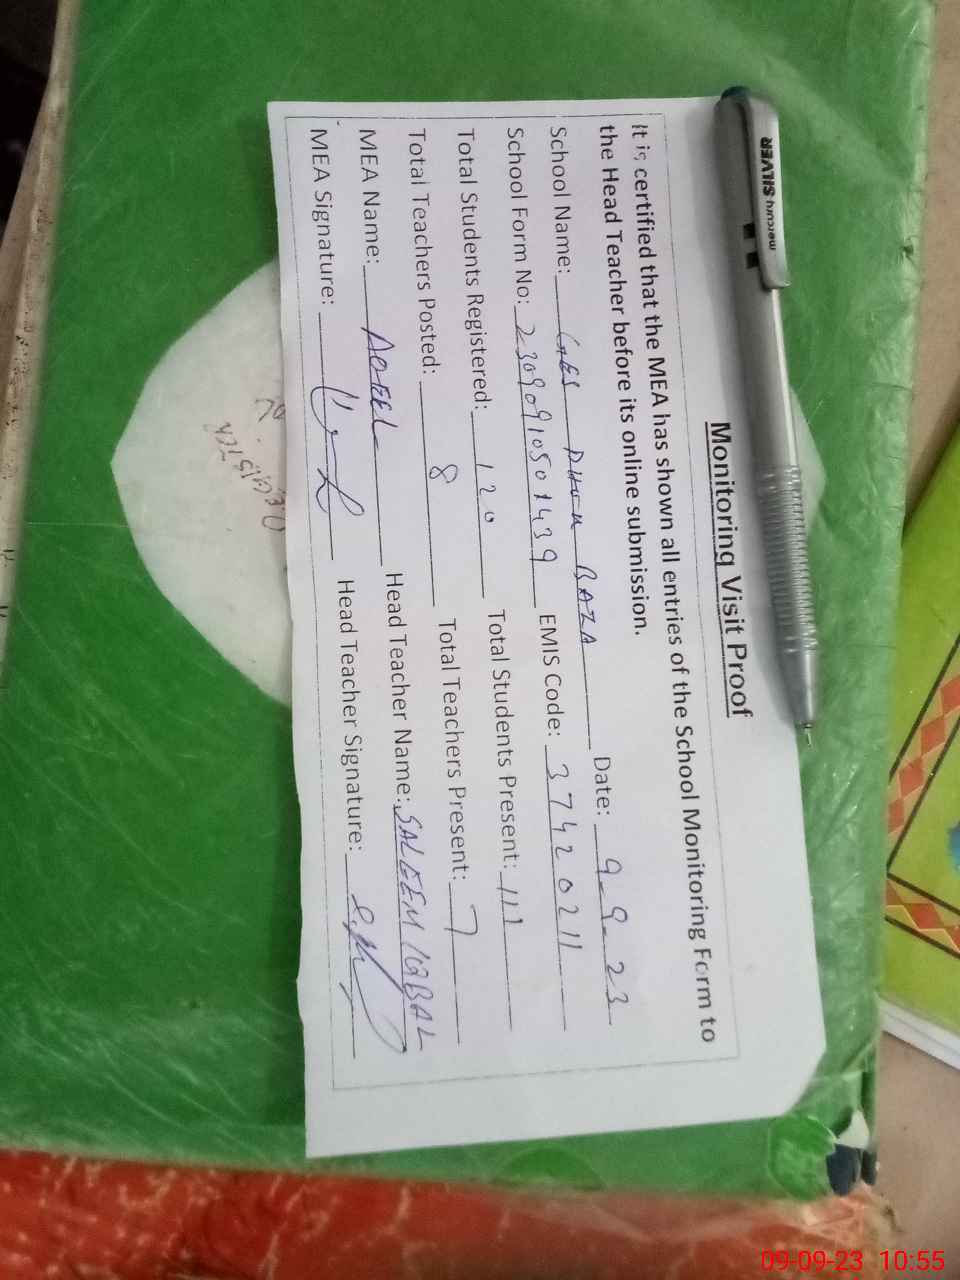 Monitoring Visit Proof
It is certified that the MEA has shown all entries of the School Monitoring Form to
the Head Teacher before its online submission.
School Name: GES DHOK BAZA Date: 9-9-23
School Form No: 23090910501439 EMIS Code: 37420211
Total Students Registered: 120 Total Students Present: 111
Total Teachers Posted: 8 Total Teachers Present: 7
MEA Name: ADEEL Head Teacher Name: SALEEM IQBAL
MEA Signature: Head Teacher Signature:
mercury SILVER
09-09-23 10:55